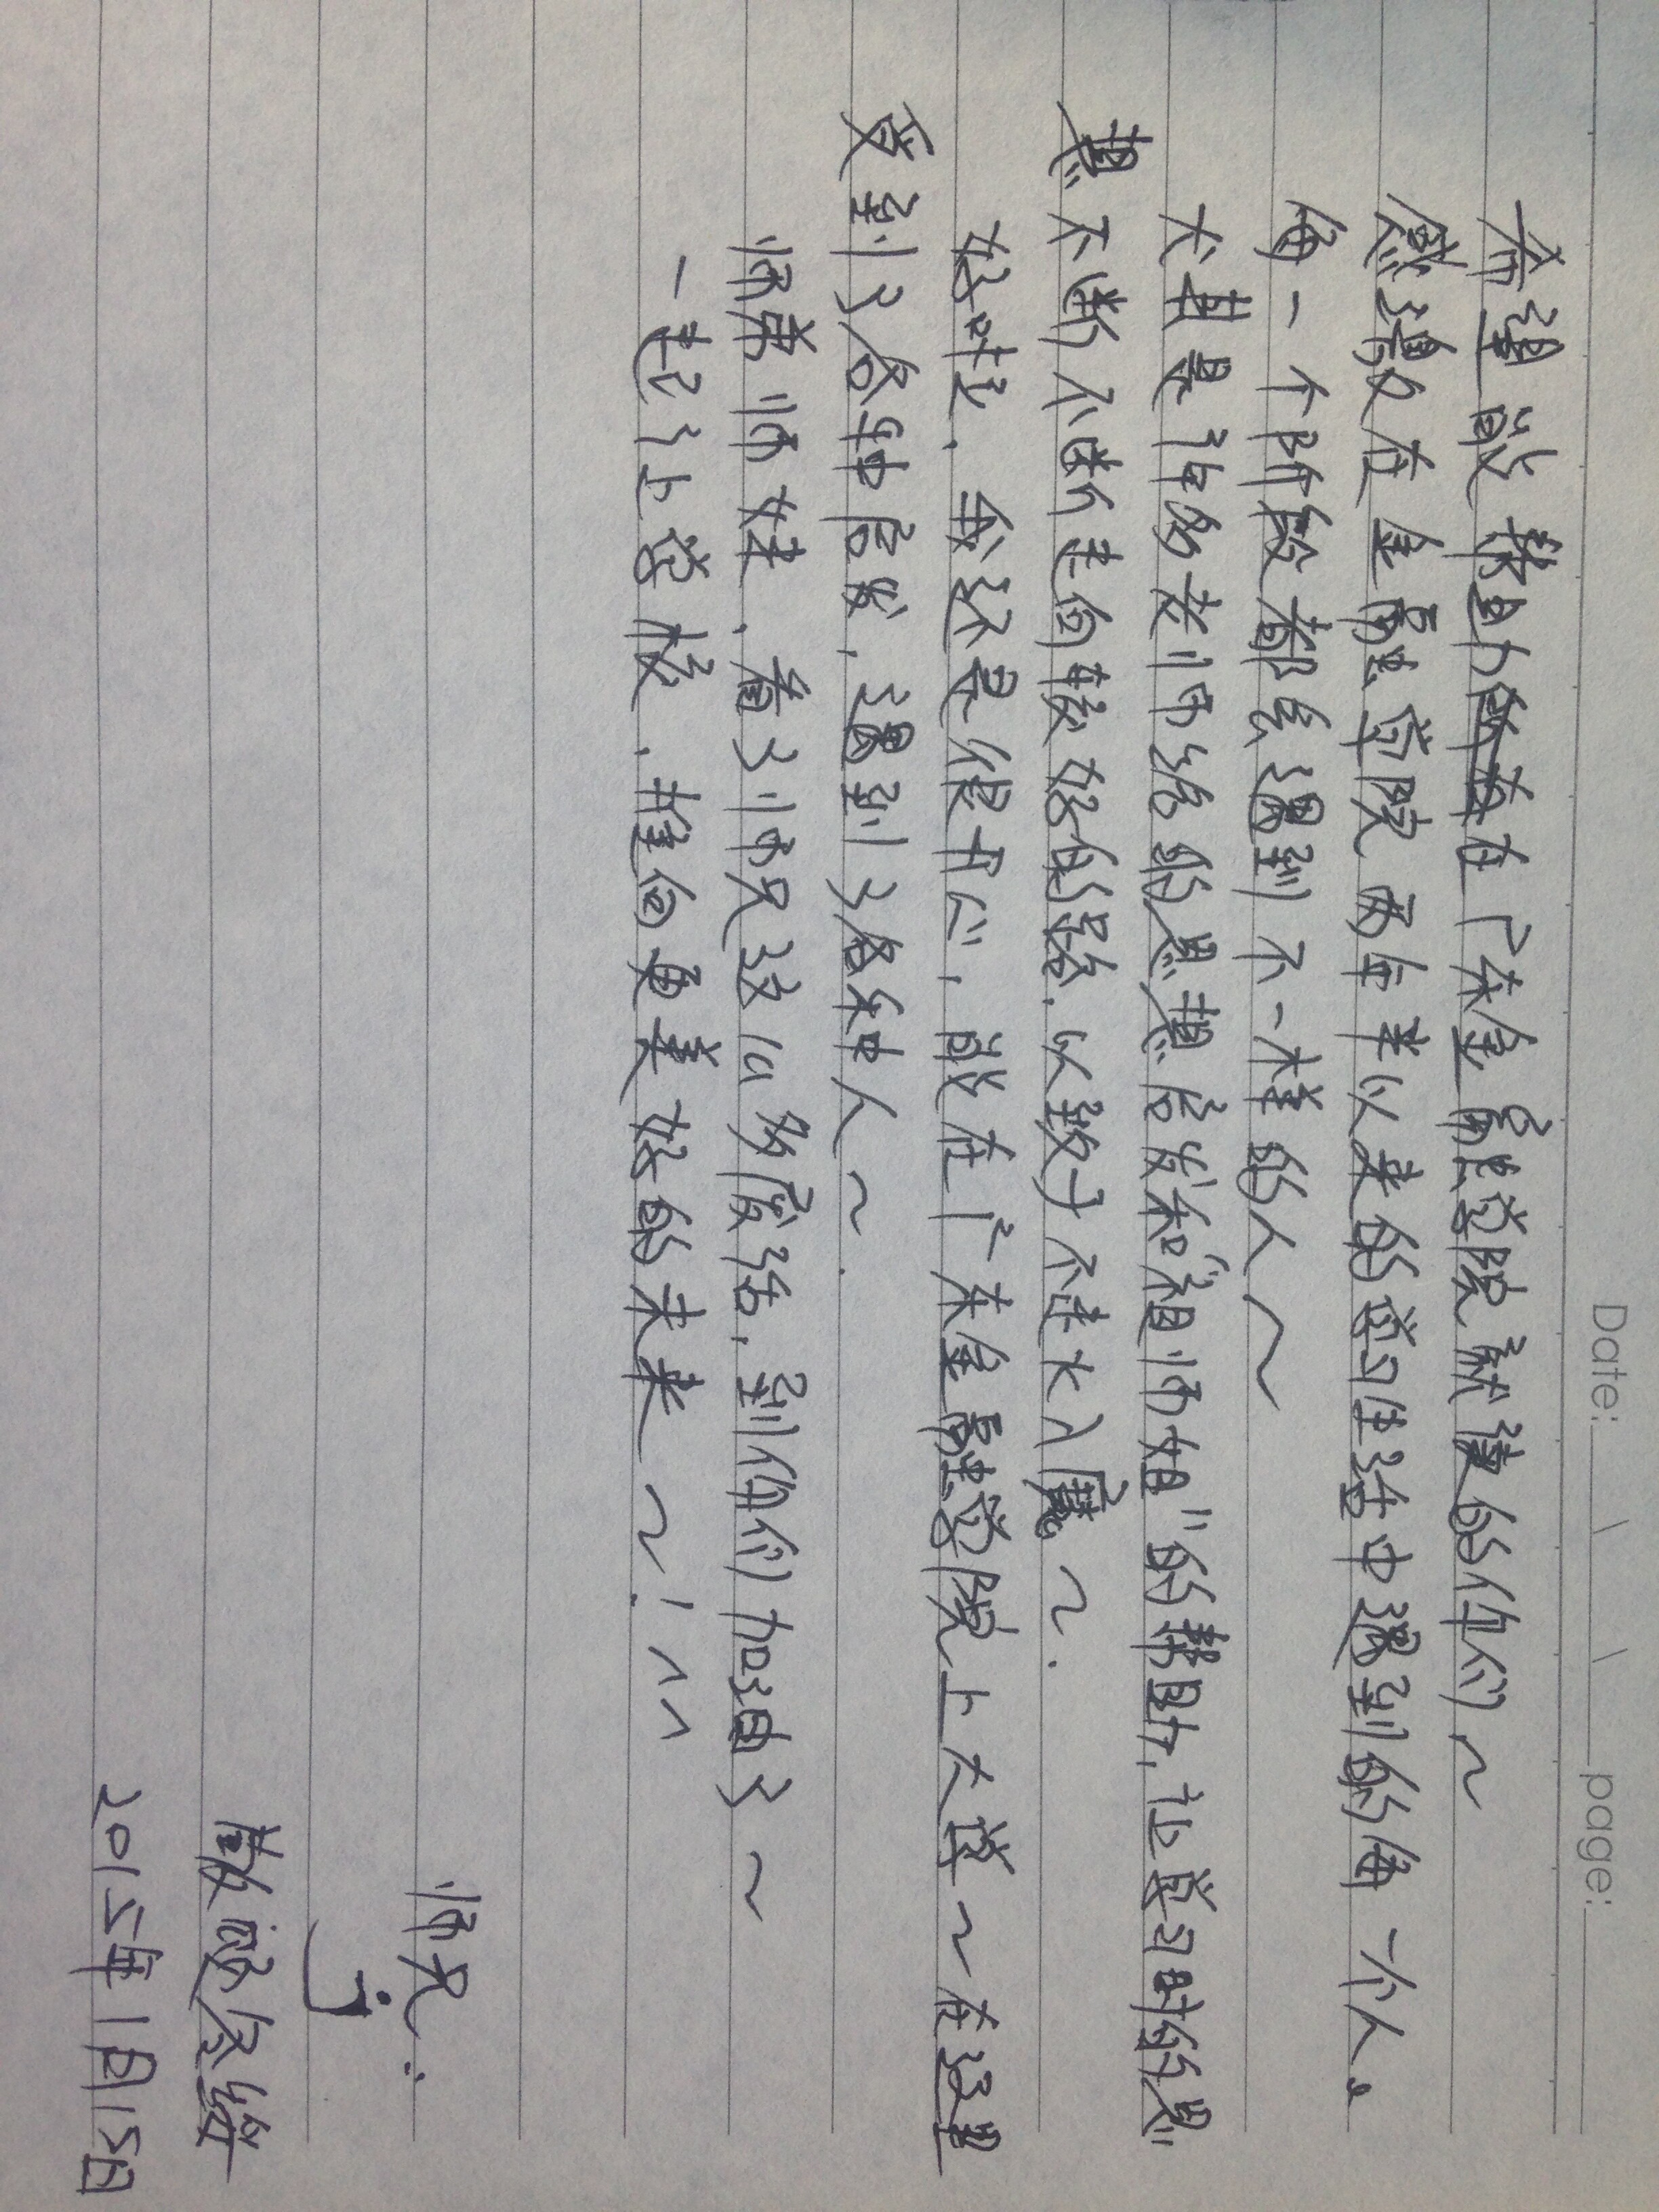 Date: page:
希望能帮助所有在广东金融学院就读的你们~
感谢在金融学院两年半以来的学习生活中遇到的每一个人。
每一个阶段都会遇到不一样的人~
尤其是许多老师给的思想启发和“祖师姐”的帮助,让学习时的思
想不断不断走向较好的路.以致于不走火入魔~.
好吐、我还是很开心,能在广东金融学院上大学~在这里
受到了各种启发,遇到了各种人~.
师弟师妹、看了师兄这么多废话,到你们加油了~
一起让学校、推向更美好的未来~!
师兄:
敬颂冬绥
2015年1月15日